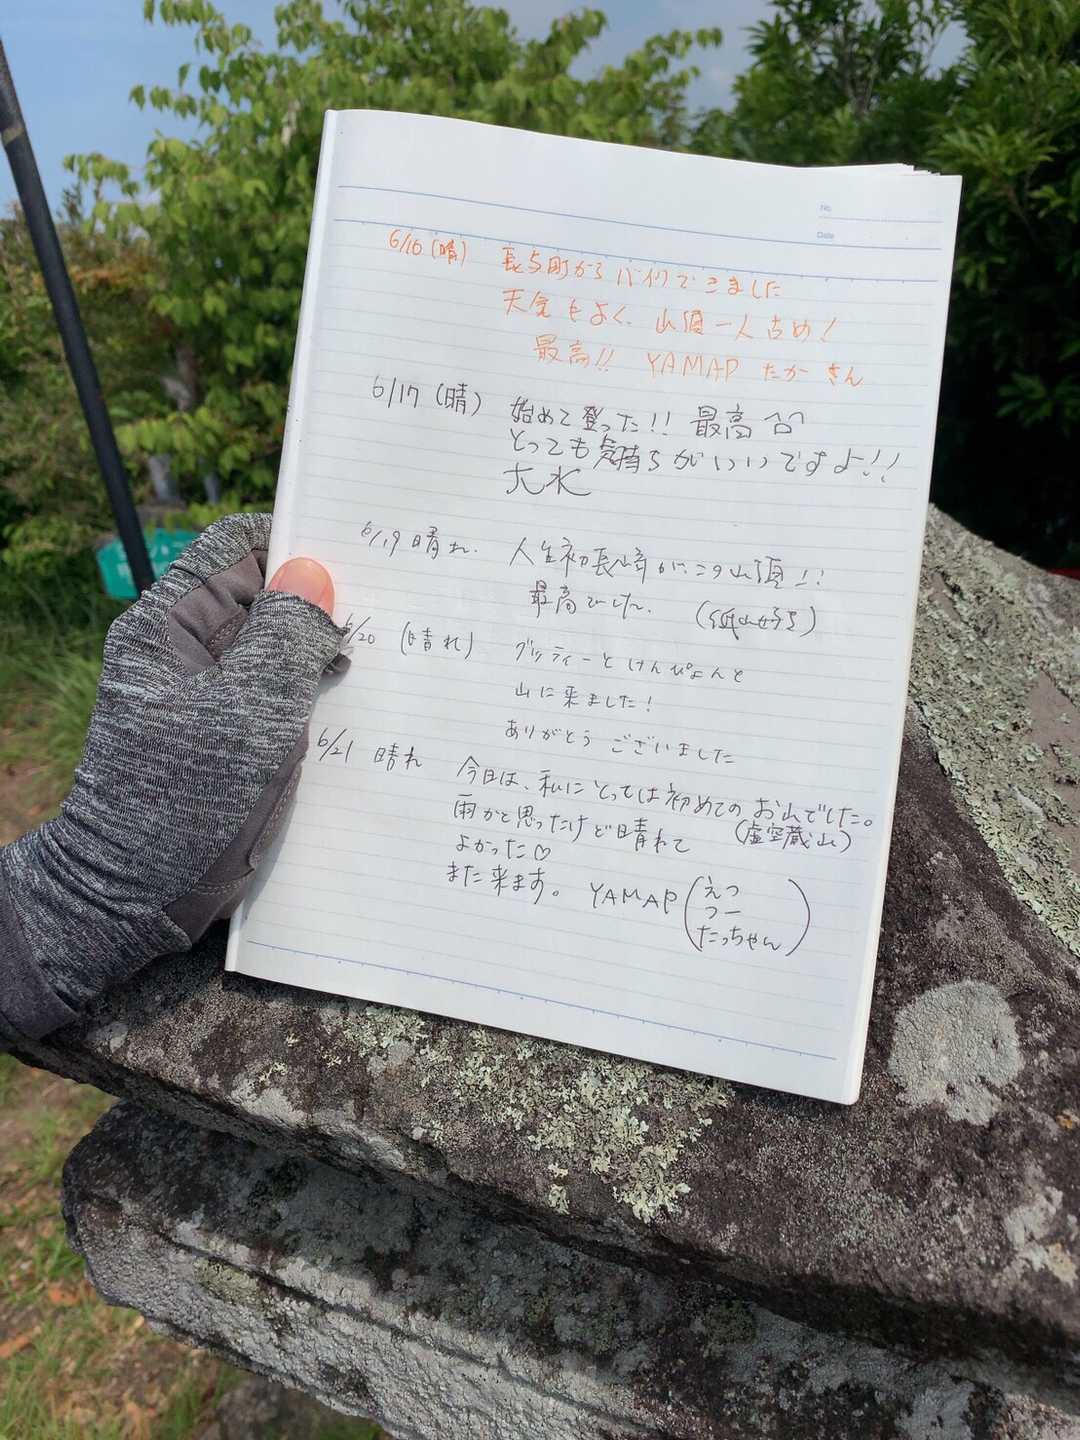 No.
Date
6/16(晴) 長与町からバイクできました
天気もよく、山頂一人占め!
最高!! YAMAP たかさん
6/17(晴) 始めて登った!! 最高
とっても気持ちがいいですよ!!
大水
6/19 晴れ. 人生初長崎がこの山頂!!
最高でした. (低山好き)
6/20 (晴れ) グッティーとけんぴょんと
山に来ました!
ありがとうございました
6/21 晴れ 今日は、私にとっては初めてのお山でした。
(虚空蔵山)
雨かと思ったけど晴れて
よかった♡
また来ます。 YAMAP (えつ
つー
たっちゃん)